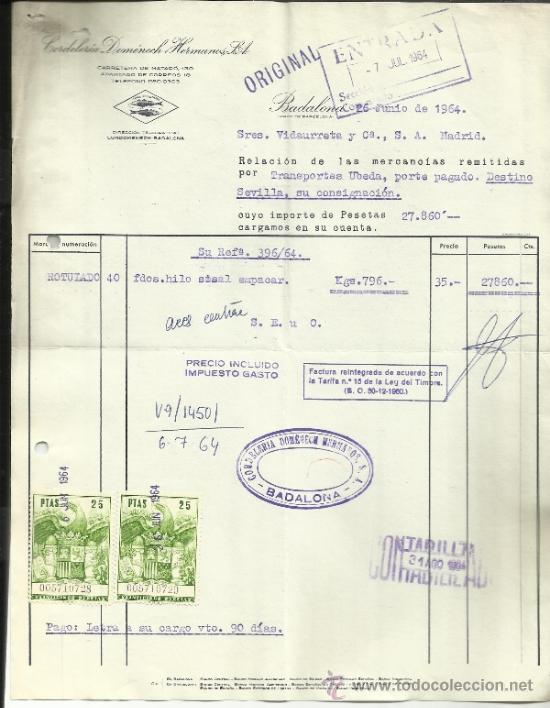 Cordelería Doménech Hermanos, S.A.
CARRETERA DE MATARÓ, 130
APARTADO DE CORREOS 10
ORIGINAL
ENTRADA
-7 JUL 1964
Badalona, 26 Junio de 1964.
Sres. Vidaurreta y Cª., S. A. Madrid.
Relación de las mercancías remitidas
por Transportes Ubeda, porte pagado. Destino
Sevilla, su consignación.
cuyo importe de Pesetas 27.860'--
cargamos en su cuenta.
Precio Pesetas Cts.
Su Refª. 396/64.
ROTULADO 40 fdos.hilo sisal empacar. Kgs.796.- 35.- 27860.--
S. E u O.
PRECIO INCLUIDO
IMPUESTO GASTO
Factura reintegrada de acuerdo con
la Tarifa n.º 15 de la Ley del Timbre.
(B. O. 30-12-1960.)
V9/1450/
6-7 64
CORDELERIA DOMENECH HERMANOS, S. A.
BADALONA
PTAS 25
005710728
PTAS 25
005710729
CONTABILIZADO
31 AGO 1964
Pago: Letra a su cargo vto. 90 días.
www.todocoleccion.net